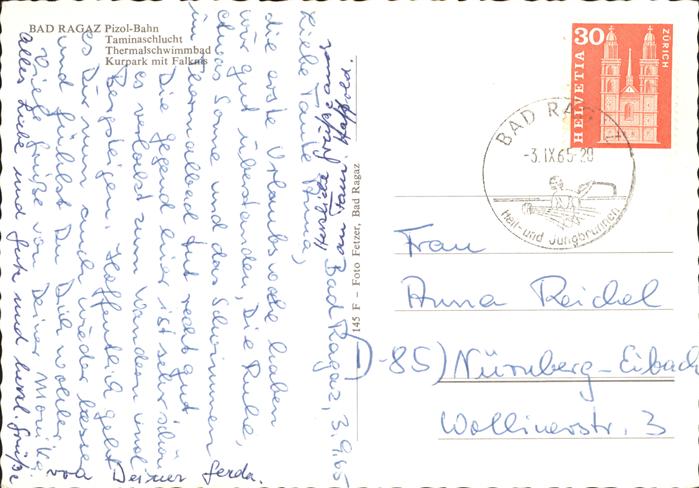 BAD RAGAZ Pizol-Bahn
Taminaschlucht
Thermalschwimmbad
Kurpark mit Falknis
145 F – Foto Fetzer, Bad Ragaz
30
HELVETIA
ZÜRICH
BAD RAGAZ
-3.IX.65-20
Heil- und Jungbrunnen
Bad Ragaz, 3.9.65
Liebe Tante Anna,
die erste Urlaubswoche haben
wir gut überstanden. Die Ruhe,
etwas Sonne und das Schwimmen
im Thermalbad tut recht gut.
Die Gegend hier ist sehr schön
es verlockt zum Wandern und
Bergsteigen. Hoffentlich geht
es Dir nun auch wieder besser
und fühlst Du Dich wohler.
Viele Grüße von Deiner Monika.
Alles Liebe und Gute und herzl. Grüße
von Deiner Gerda.
Herzliche Grüße
an Fam. Haffold.
Frau
Anna Reichel
D-85) Nürnberg-Eibach
Wollinerstr. 3